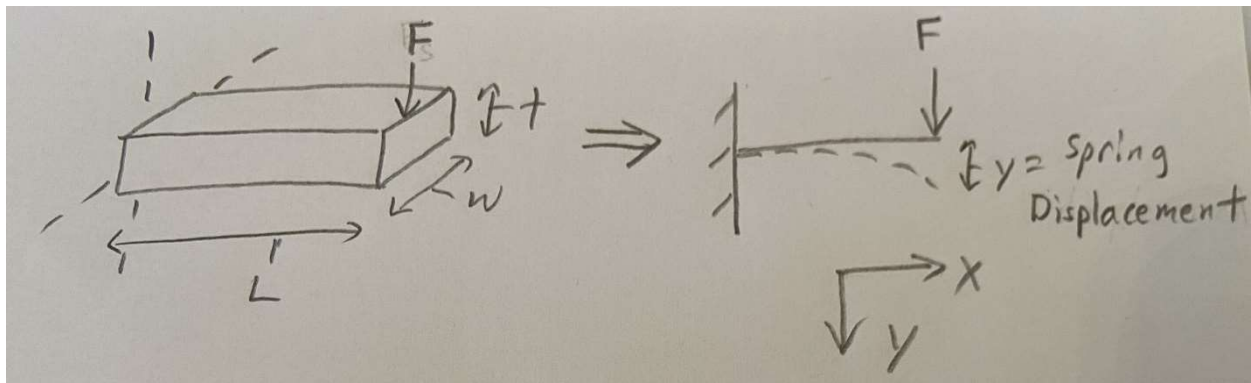 F
t
w
L
F
y = spring
Displacement
X
y